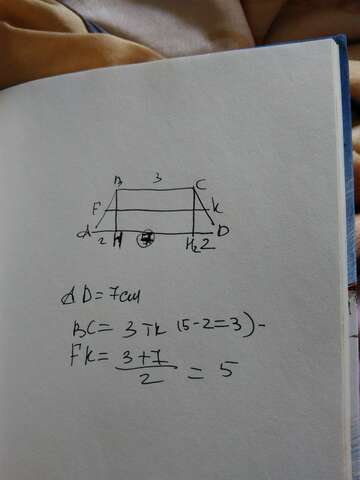 B 3 C
F K
A 2 H 7 H2 2 D
AD = 7cm
BC = 3 тк (5-2=3) -
FK = 3+7 / 2 = 5